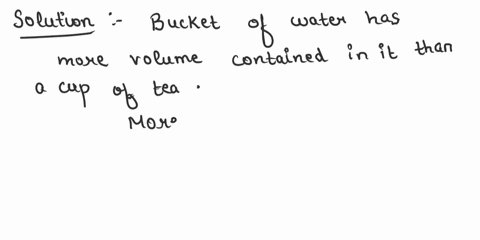 Solution :- Bucket of water has
more volume contained in it than
a cup of tea .
More